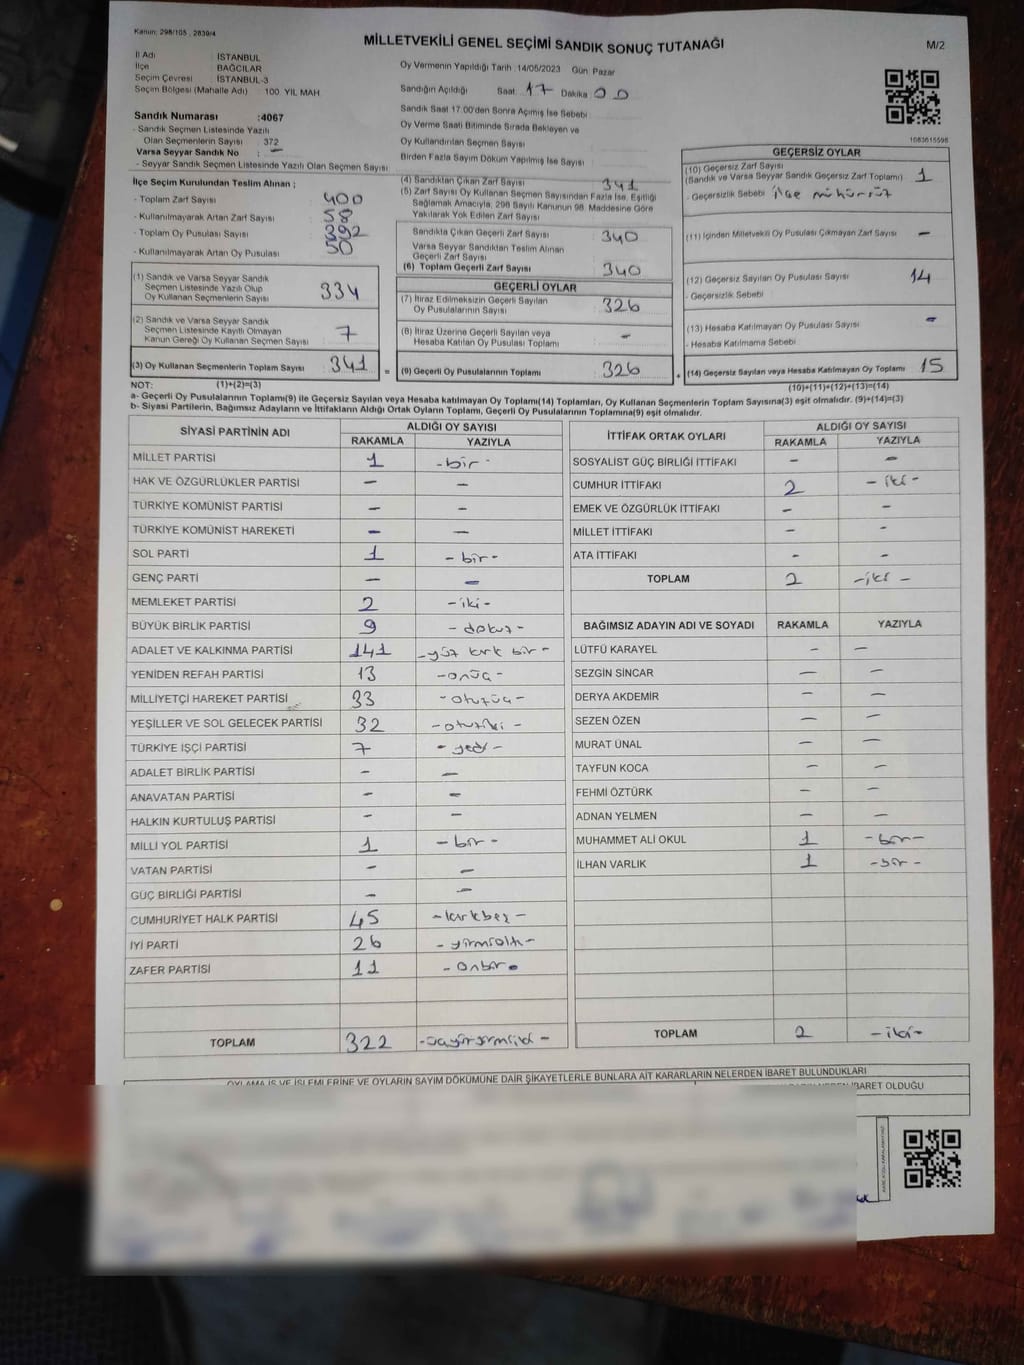 Kanun: 298/105 , 2839/4
MİLLETVEKİLİ GENEL SEÇİMİ SANDIK SONUÇ TUTANAĞI
M/2
İl Adı : İSTANBUL
İlçe : BAĞCILAR
Seçim Çevresi : İSTANBUL-3
Seçim Bölgesi (Mahalle Adı) 100 YIL MAH
Oy Vermenin Yapıldığı Tarih :14/05/2023 Gün Pazar
Sandığın Açıldığı Saat 17 Dakika 00
Sandık Saat 17.00'den Sonra Açılmış İse Sebebi
Oy Verme Saati Bitiminde Sırada Bekleyen ve
Oy Kullandırılan Seçmen Sayısı
Birden Fazla Sayım Döküm Yapılmış İse Sayısı
1083615598
Sandık Numarası :4067
- Sandık Seçmen Listesinde Yazılı
Olan Seçmenlerin Sayısı : 372
Varsa Seyyar Sandık No : -
- Seyyar Sandık Seçmen Listesinde Yazılı Olan Seçmen Sayısı
İlçe Seçim Kurulundan Teslim Alınan ;
- Toplam Zarf Sayısı : 400
- Kullanılmayarak Artan Zarf Sayısı : 58
- Toplam Oy Pusulası Sayısı : 392
- Kullanılmayarak Artan Oy Pusulası : 50
(1) Sandık ve Varsa Seyyar Sandık
Seçmen Listesinde Yazılı Olup
Oy Kullanan Seçmenlerin Sayısı : 334
(2) Sandık ve Varsa Seyyar Sandık
Seçmen Listesinde Kayıtlı Olmayan
Kanun Gereği Oy Kullanan Seçmen Sayısı : 7
(3) Oy Kullanan Seçmenlerin Toplam Sayısı : 341 =
(4) Sandıktan Çıkan Zarf Sayısı : 341
(5) Zarf Sayısı Oy Kullanan Seçmen Sayısından Fazla İse, Eşitliği
Sağlamak Amacıyla, 298 Sayılı Kanunun 98. Maddesine Göre
Yakılarak Yok Edilen Zarf Sayısı
Sandıkta Çıkan Geçerli Zarf Sayısı : 340
Varsa Seyyar Sandıktan Teslim Alınan
Geçerli Zarf Sayısı
(6) Toplam Geçerli Zarf Sayısı : 340
GEÇERLİ OYLAR
(7) İtiraz Edilmeksizin Geçerli Sayılan
Oy Pusulalarının Sayısı : 326
(8) İtiraz Üzerine Geçerli Sayılan veya
Hesaba Katılan Oy Pusulası Toplamı : -
(9) Geçerli Oy Pusulalarının Toplamı : 326 +
GEÇERSİZ OYLAR
(10) Geçersiz Zarf Sayısı
(Sandık ve Varsa Seyyar Sandık Geçersiz Zarf Toplamı) : 1
- Geçersizlik Sebebi : ilçe mühürsüz
(11) İçinden Milletvekili Oy Pusulası Çıkmayan Zarf Sayısı -
(12) Geçersiz Sayılan Oy Pusulası Sayısı 14
- Geçersizlik Sebebi
(13) Hesaba Katılmayan Oy Pusulası Sayısı -
- Hesaba Katılmama Sebebi
(14) Geçersiz Sayılan veya Hesaba Katılmayan Oy Toplamı 15
NOT: (1)+(2)=(3)
(10)+(11)+(12)+(13)=(14)
a- Geçerli Oy Pusulalarının Toplamı(9) ile Geçersiz Sayılan veya Hesaba katılmayan Oy Toplam(14) Toplamları, Oy Kullanan Seçmenlerin Toplam Sayısına(3) eşit olmalıdır. (9)+(14)=(3)
b- Siyasi Partilerin, Bağımsız Adayların ve İttifakların Aldığı Ortak Oyların Toplamı, Geçerli Oy Pusulalarının Toplamına(9) eşit olmalıdır.
SİYASİ PARTİNİN ADI ALDIĞI OY SAYISI
RAKAMLA YAZIYLA
MİLLET PARTİSİ 1 -bir-
HAK VE ÖZGÜRLÜKLER PARTİSİ - -
TÜRKİYE KOMÜNİST PARTİSİ - -
TÜRKİYE KOMÜNİST HAREKETİ - -
SOL PARTİ 1 -bir-
GENÇ PARTİ - -
MEMLEKET PARTİSİ 2 -iki-
BÜYÜK BİRLİK PARTİSİ 9 -dokuz-
ADALET VE KALKINMA PARTİSİ 141 -yüz kırk bir-
YENİDEN REFAH PARTİSİ 13 -onüç-
MİLLİYETÇİ HAREKET PARTİSİ 33 -otuzüç-
YEŞİLLER VE SOL GELECEK PARTİSİ 32 -otuziki-
TÜRKİYE İŞÇİ PARTİSİ 7 -yedi-
ADALET BİRLİK PARTİSİ - -
ANAVATAN PARTİSİ - -
HALKIN KURTULUŞ PARTİSİ - -
MİLLİ YOL PARTİSİ 1 -bir-
VATAN PARTİSİ - -
GÜÇ BİRLİĞİ PARTİSİ - -
CUMHURİYET HALK PARTİSİ 45 -kırkbeş-
İYİ PARTİ 26 -yirmialtı-
ZAFER PARTİSİ 11 -onbir-
TOPLAM 322
İTTİFAK ORTAK OYLARI ALDIĞI OY SAYISI
RAKAMLA YAZIYLA
SOSYALİST GÜÇ BİRLİĞİ İTTİFAKI - -
CUMHUR İTTİFAKI 2 -iki-
EMEK VE ÖZGÜRLÜK İTTİFAKI - -
MİLLET İTTİFAKI - -
ATA İTTİFAKI - -
TOPLAM 2 -iki-
BAĞIMSIZ ADAYIN ADI VE SOYADI RAKAMLA YAZIYLA
LÜTFÜ KARAYEL - -
SEZGİN SİNCAR - -
DERYA AKDEMİR - -
SEZEN ÖZEN - -
MURAT ÜNAL - -
TAYFUN KOCA - -
FEHMİ ÖZTÜRK - -
ADNAN YELMEN - -
MUHAMMET ALİ OKUL 1 -bir-
İLHAN VARLIK 1 -bir-
TOPLAM 2 -iki-
OYLAMA İŞ VE İŞLEMLERİNE VE OYLARIN SAYIM DÖKÜMÜNE DAİR ŞİKAYETLERLE BUNLARA AİT KARARLARIN NELERDEN İBARET BULUNDUKLARI
İBARET OLDUĞU